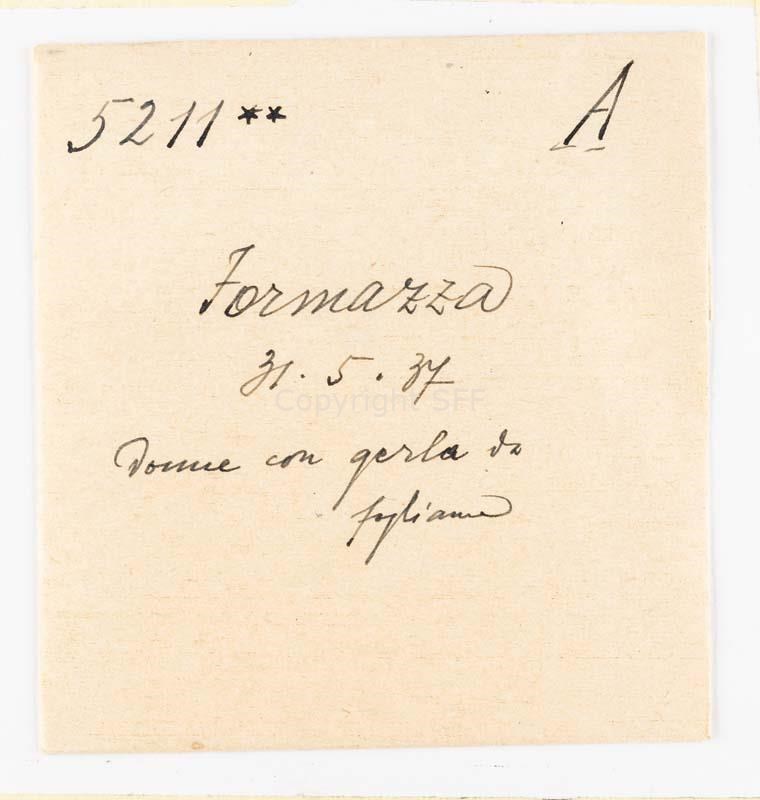 5211** A
Formazza
31. 5. 37
Copyright SFF
Donne con gerla da
fogliame